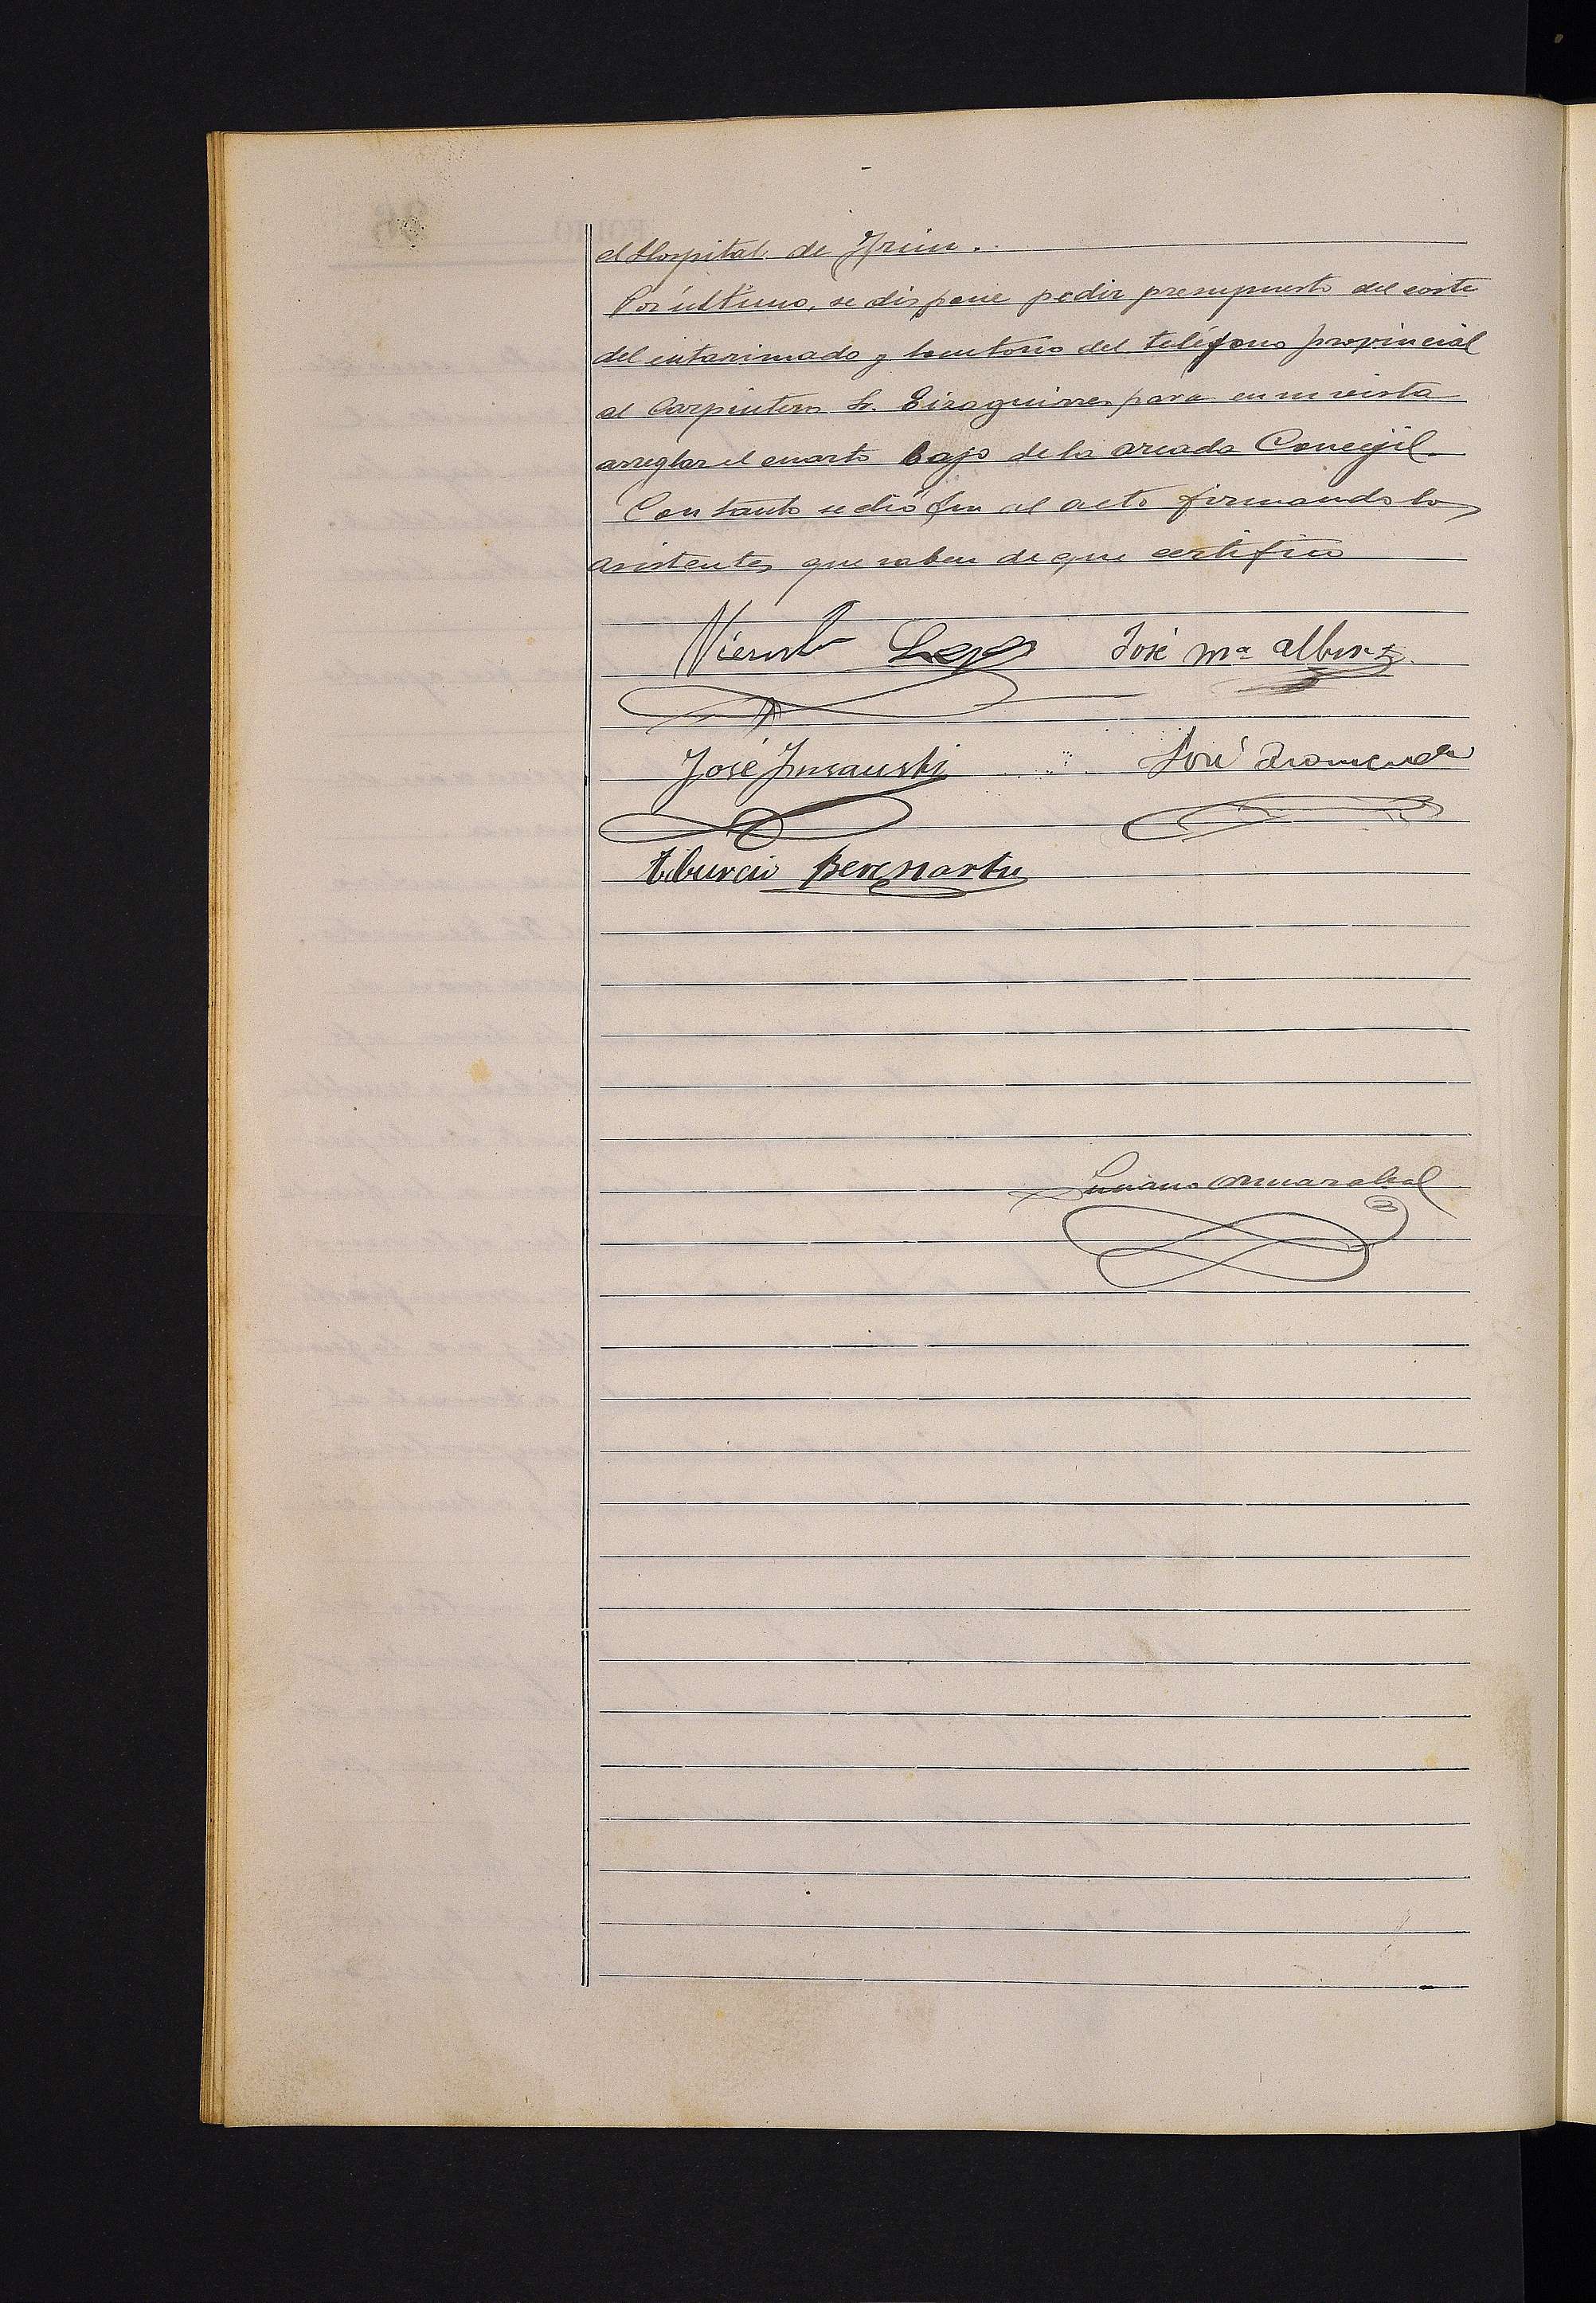 el Hospital de Irún.
Por último, se dispone pedir presupuesto del coste
del entarimado y locutorio del teléfono provincial
al Carpintero Sr. Eizaguirre para en su vista
arreglar el cuarto bajo de la arcada Concejil.
Con tanto se dió fin al acto firmando los
asistentes que saben de que certifico
José Mª
José Insausti José
Tiburcio Berasartu
Luciano